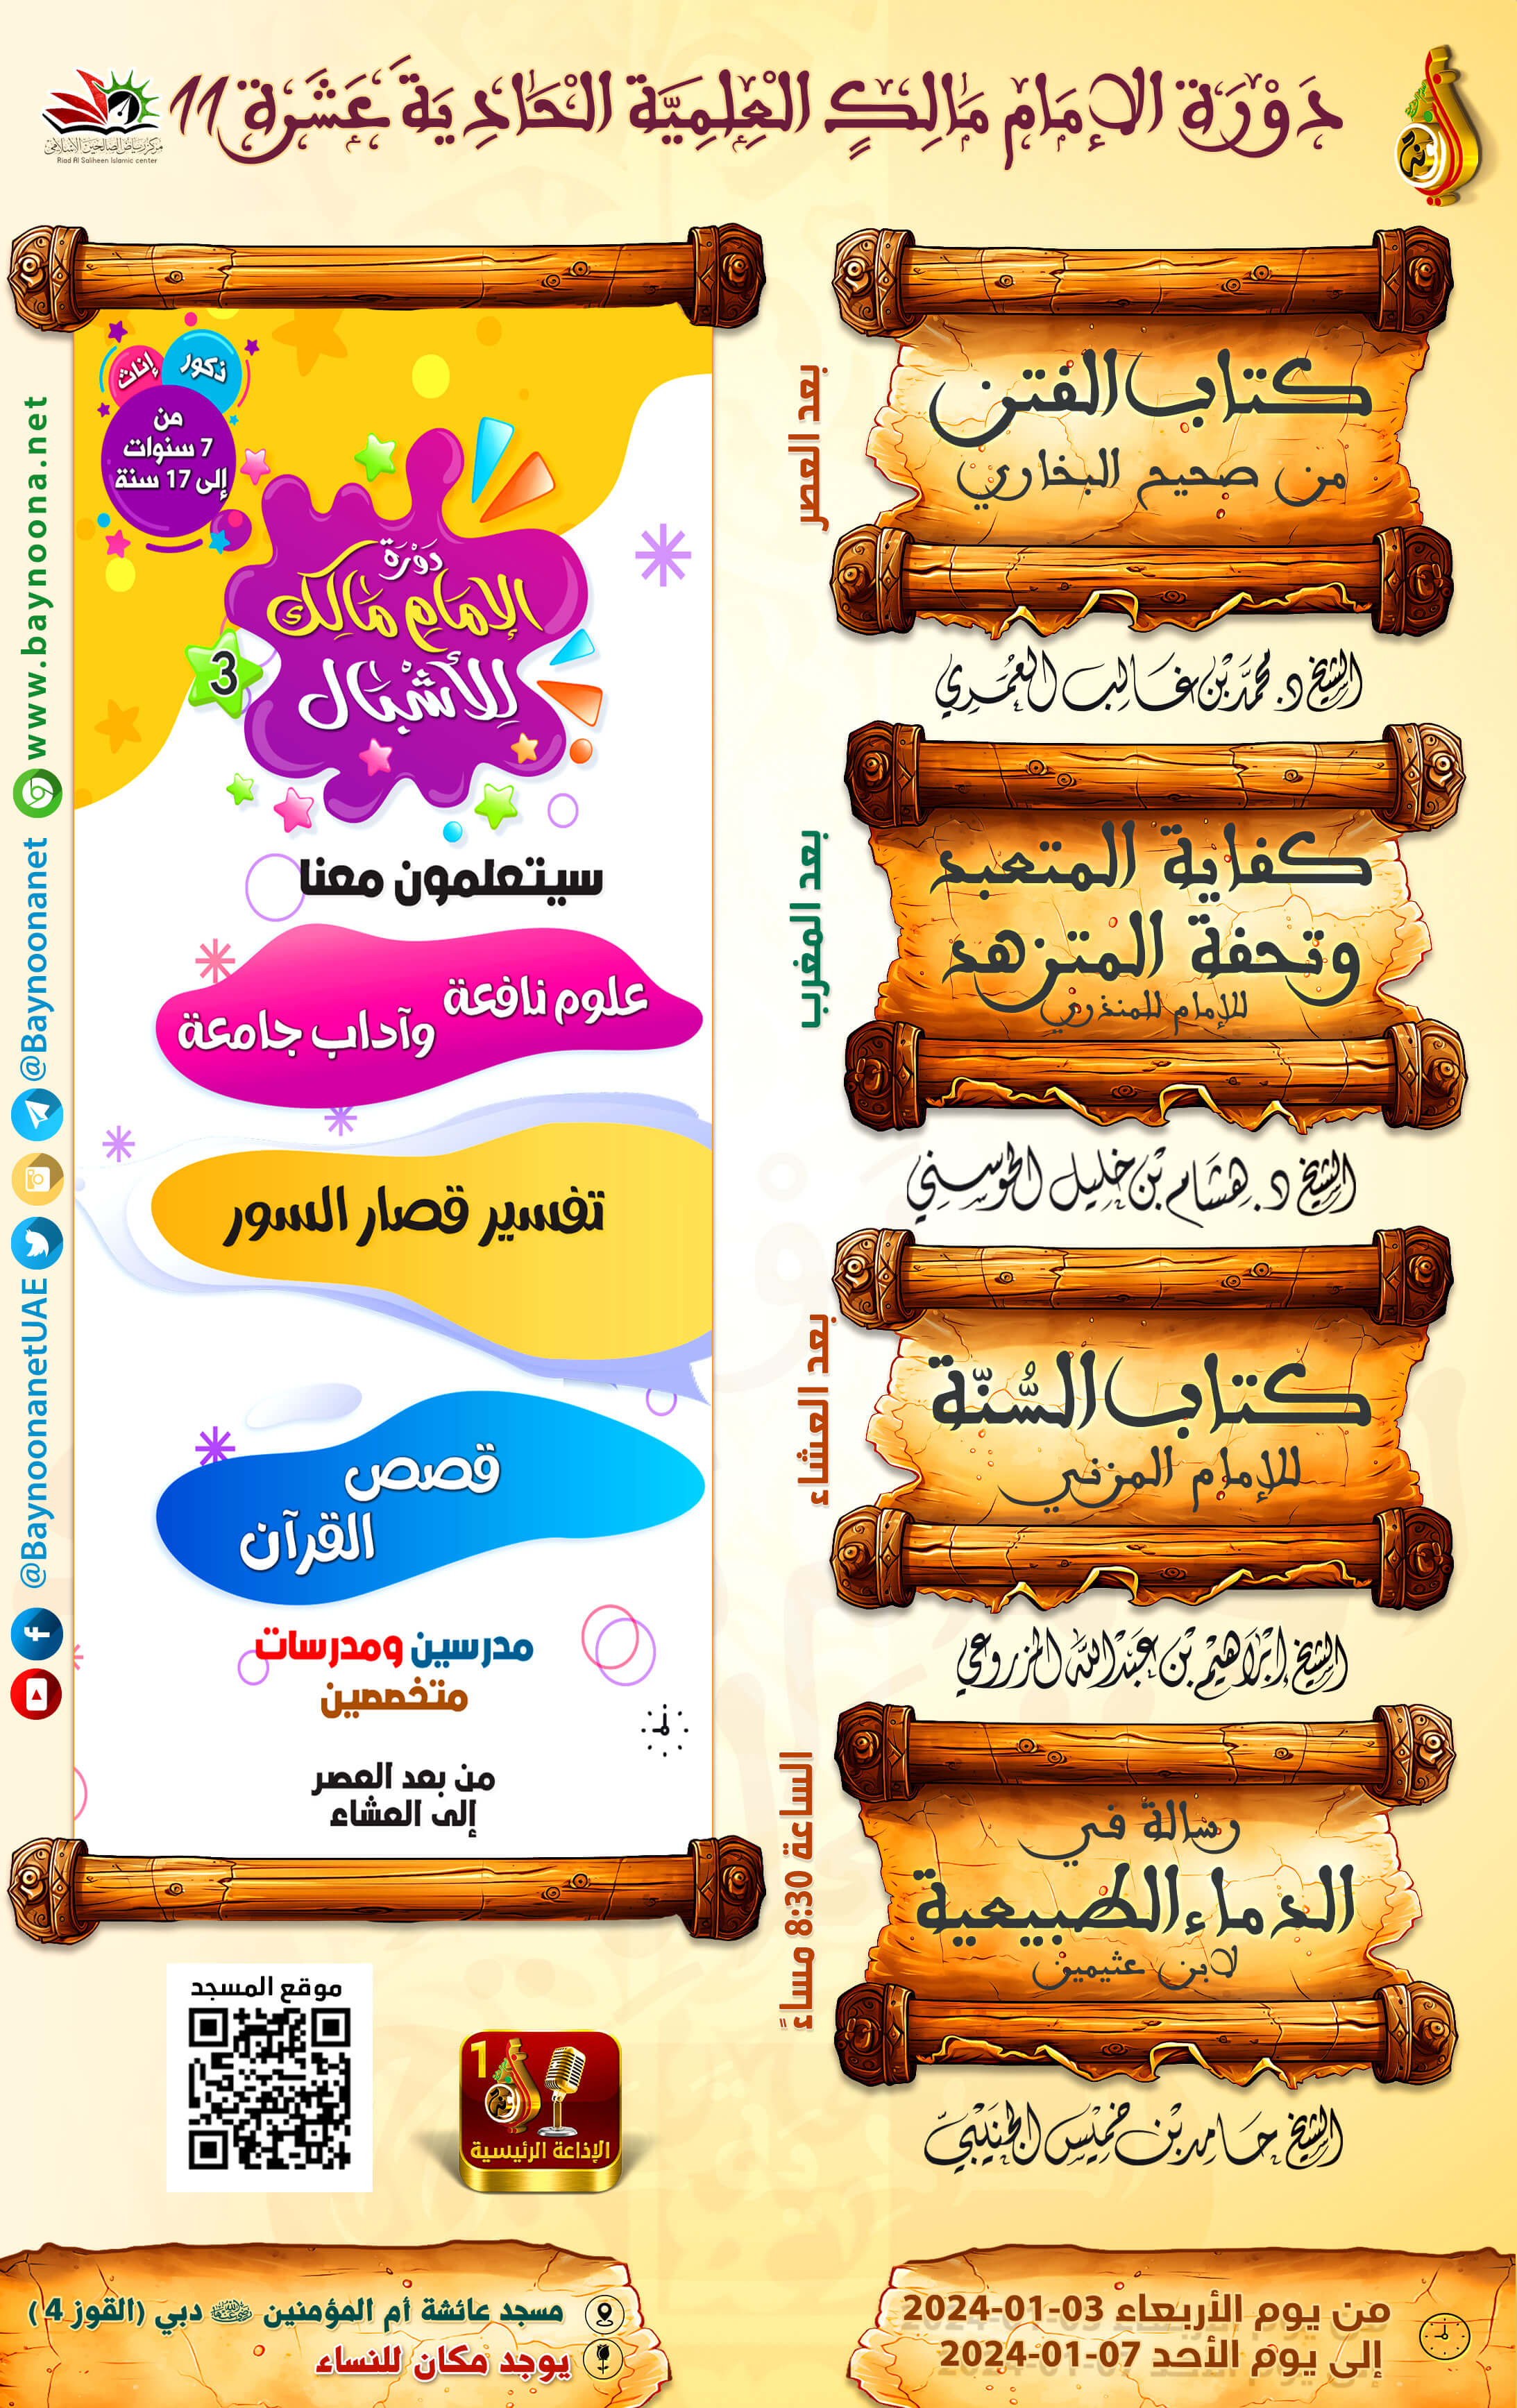 دَوْرَة الإمَام مَالِكٍ العِلمِيَّة الحَادِيَةَ عَشَرَة 11
مركز رياض الصالحين الإسلامي
Riad Al Saliheen Islamic center
بعد العصر
كتاب الفتن
من صحيح البخاري
الشيخ د. محمد بن غالب العمري
بعد المغرب
كفاية المتعبد
وتحفة المتزهد
للإمام المنذري
الشيخ د. هشام بن خليل الحوسني
بعد العشاء
كتاب السُّنّة
للإمام المزني
الشيخ إبراهيم بن عبدالله المزروعي
الساعة 8:30 مساءً
رسالة في
الدماء الطبيعية
لابن عثيمين
الشيخ حامد بن خميس الجنيبي
ذكور
إناث
من
7 سنوات
إلى 17 سنة
دَوْرَة
الإمَام مَالِك
لِلأشْبَال
3
سيتعلمون معنا
علوم نافعة
وآداب جامعة
تفسير قصار السور
قصص
القرآن
مدرسين ومدرسات
متخصصين
من بعد العصر
إلى العشاء
www.baynoona.net
@Baynoonanet
@BaynoonanetUAE
موقع المسجد
1
الإذاعة الرئيسية
من يوم الأربعاء 03-01-2024
إلى يوم الأحد 07-01-2024
مسجد عائشة أم المؤمنين رضي الله عنها دبي (القوز 4)
يوجد مكان للنساء